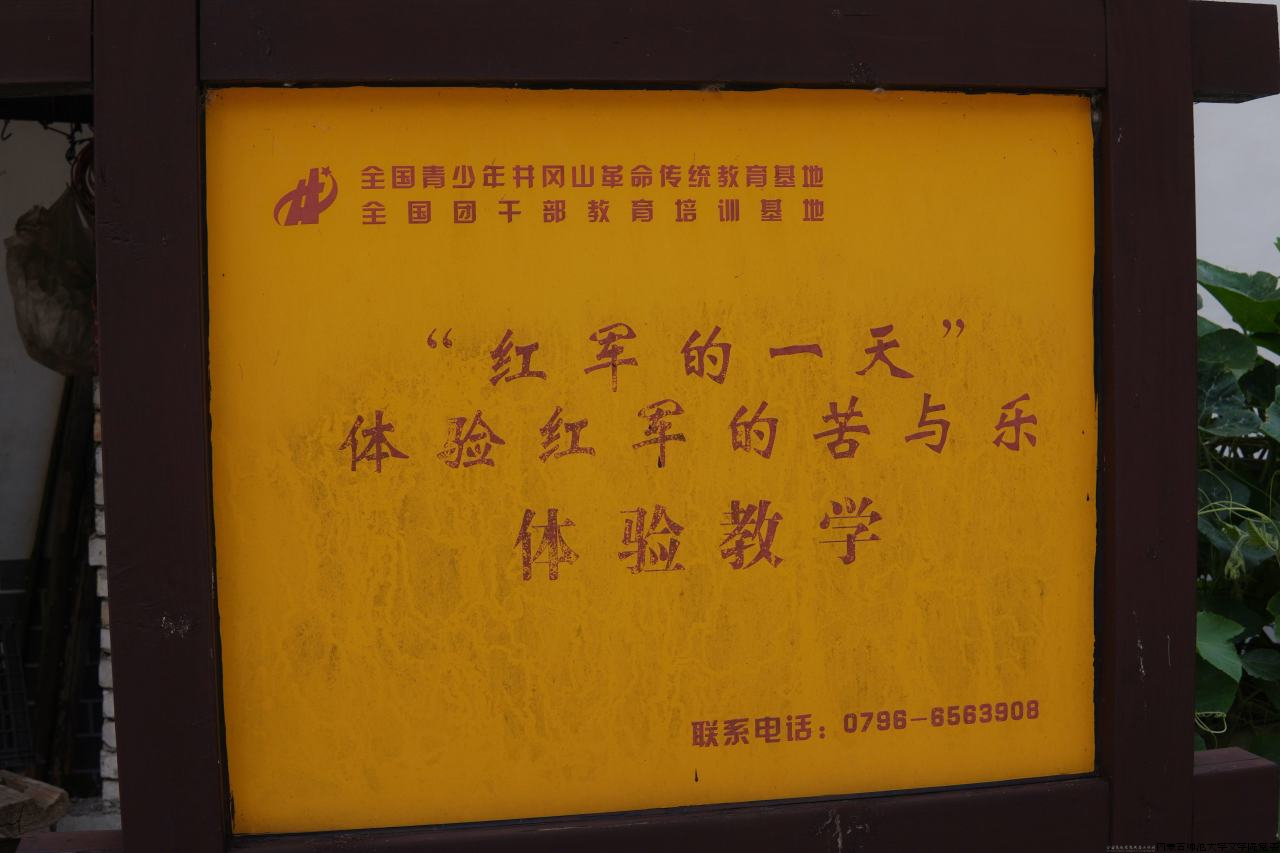 全国青少年井冈山革命传统教育基地
全国团干部教育培训基地
“红军的一天”
体验红军的苦与乐
体验教学
联系电话：0796-6563908